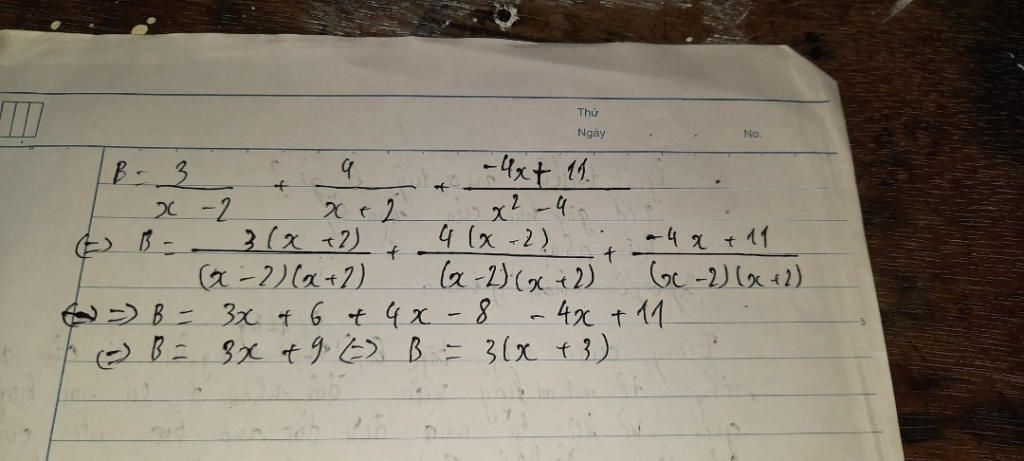 Thứ
Ngày
No.
B = 3/(x - 2) + 4/(x + 2) + (-4x + 11)/(x² - 4)
(=) B = 3(x + 2)/((x - 2)(x + 2)) + 4(x - 2)/((x - 2)(x + 2)) + (-4x + 11)/((x - 2)(x + 2))
=) B = 3x + 6 + 4x - 8 - 4x + 11
(=) B = 3x + 9 (=) B = 3(x + 3)